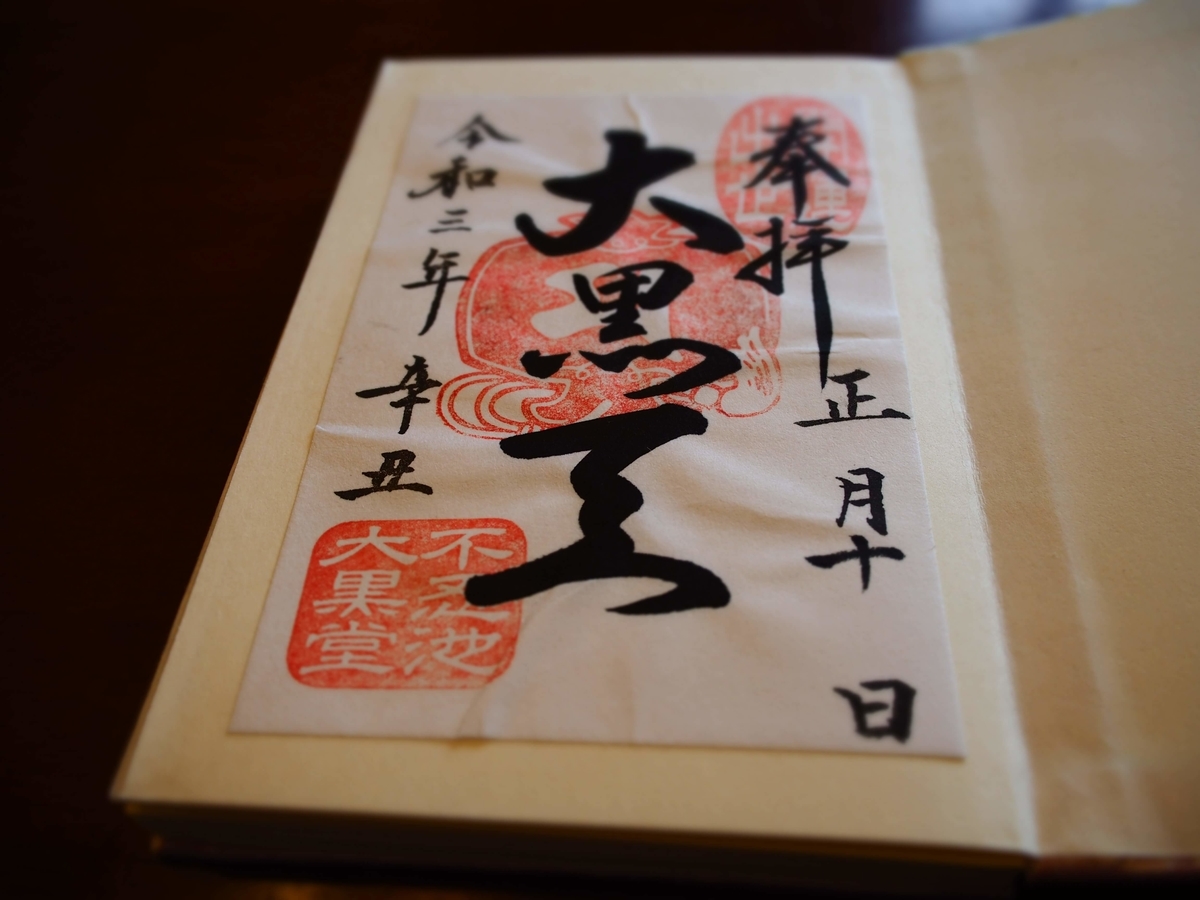 奉拝
正月十 日
大黒天
令和三年 辛丑
不忍池
大黒堂